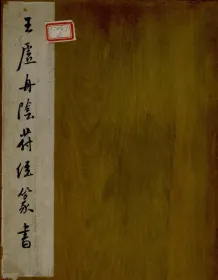 王虛舟陰符經篆書